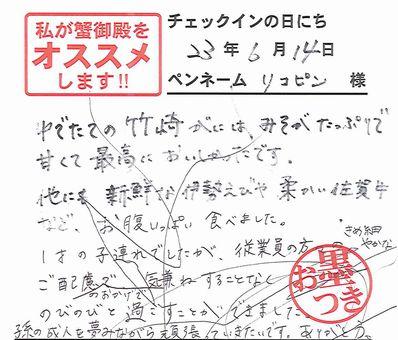 私が蟹御殿を
オススメ
します!!
チェックインの日にち
23年6月14日
ペンネーム リコピン 様
ゆでたての竹崎がには、みそがたっぷりで
甘くて最高においしかったです。
他にも 新鮮な伊勢えびや柔かい佐賀牛
など、お腹いっぱい食べました。
1才の子連れでしたが、従業員の方の
きめ細やかな
ご配慮
のおかげで
気兼ねすることなく
のびのびと過ごすことができました。
孫の成人を夢みながら頑張っていきたいです。ありがとう。
お墨つき